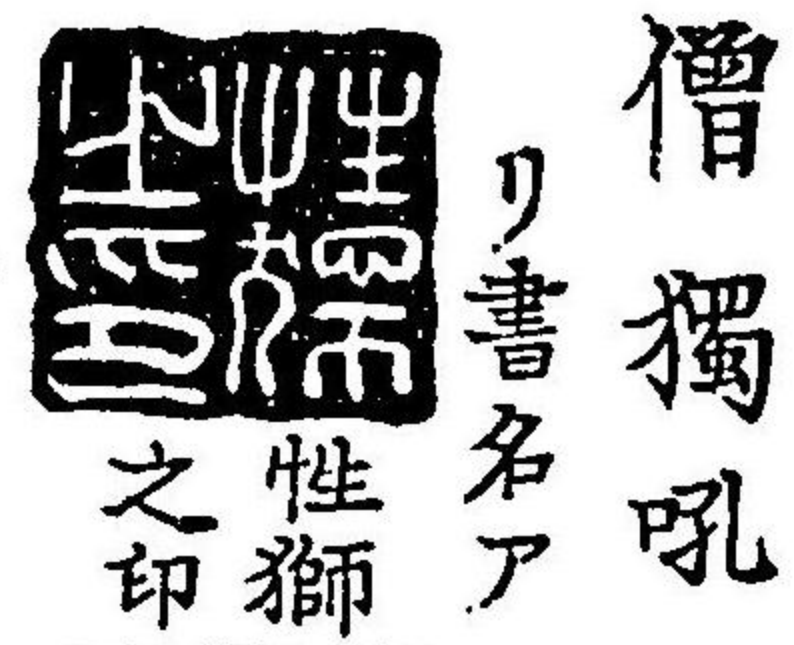 僧獨吼
リ書名ア
性獅之印
性獅
之印